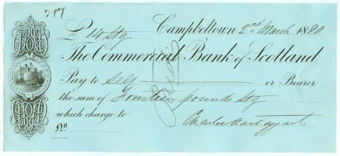 £14 Stg Campbeltown 2nd March 1880
The Commercial Bank of Scotland
Pay to Self or Bearer
the sum of Fourteen pounds Stg
which charge to
£ Charles Mactaggart